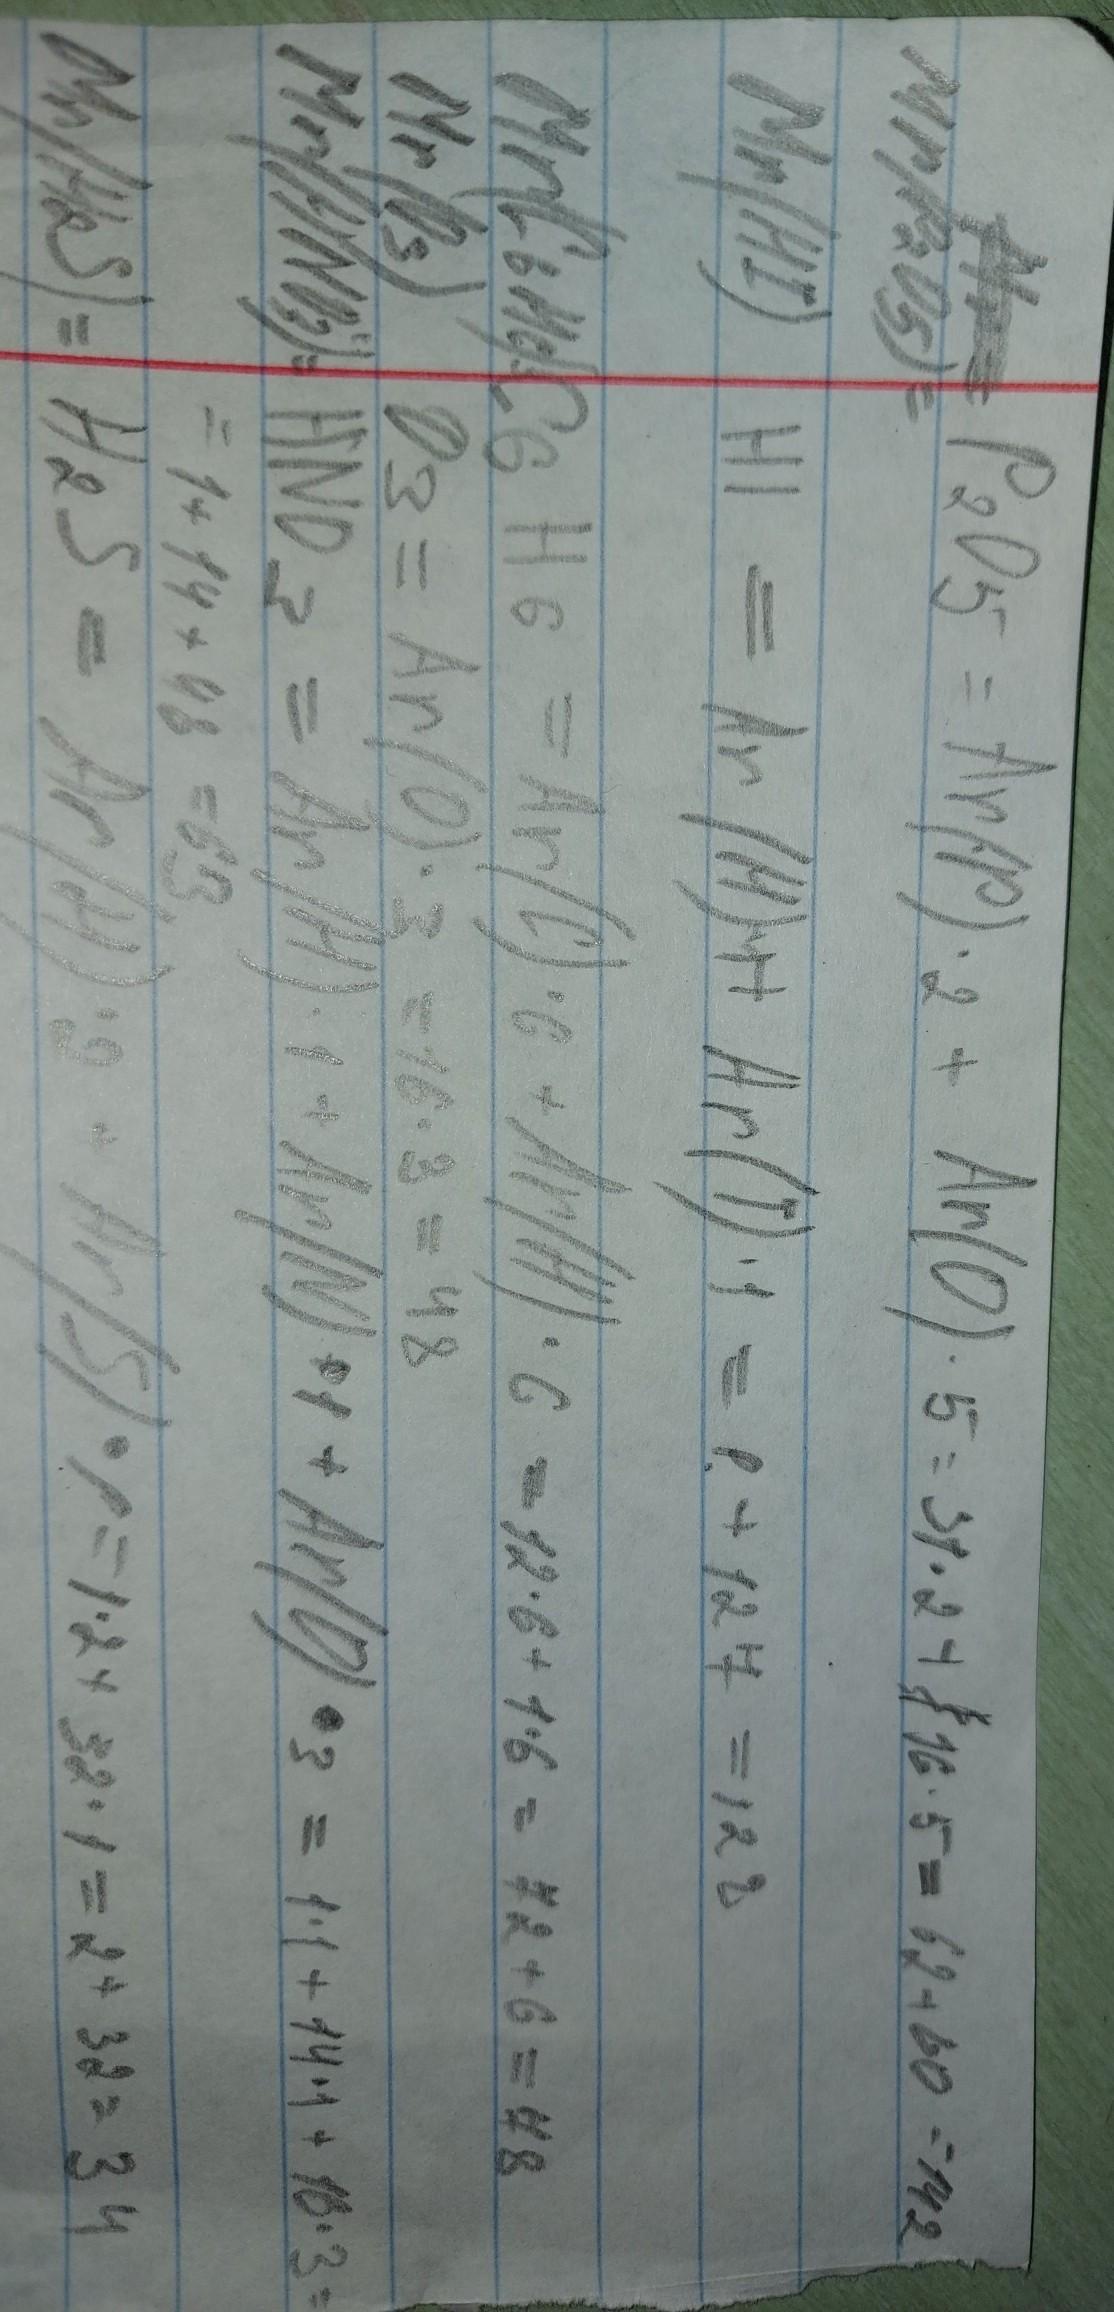 Mr(P2O5)= P2O5 = Ar(P)·2 + Ar(O)·5 = 31·2+16·5 = 62+60 =142
Mr(HI) HI = Ar(H)·1+ Ar(I)·1 = 1 + 127 =128
Mr(C6H6)= C6 H6 = Ar(C)·6 + Ar(H)·6 = 12·6+1·6= 72+6=78
Mr(O3) O3 = Ar(O)·3 =16·3 = 48
Mr(HNO3)= HNO3 = Ar(H)·1+Ar(N)·1 + Ar(O)·3 = 1·1+14·1+16·3=
= 1+14+48 =63
Mr(H2S)= H2S = Ar(H)·2 + Ar(S)·1=1·2+32·1=2+32=34